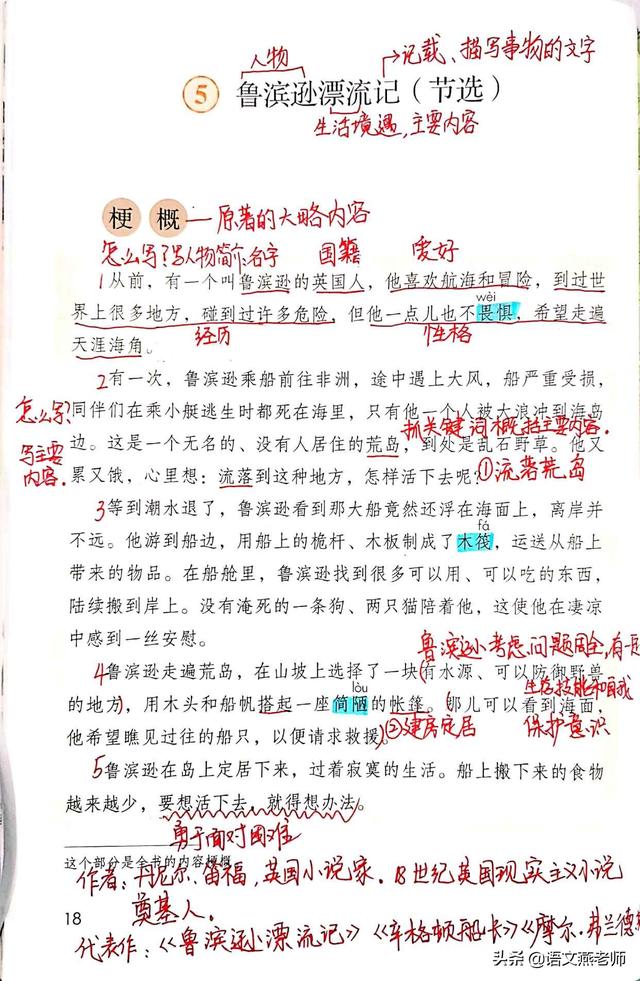 人物
记载、描写事物的文字
5 鲁滨逊漂流记（节选）
生活境遇,主要内容
梗概
原著的大略内容
怎么写?写人物简介:名字 国籍 爱好
1从前，有一个叫鲁滨逊的英国人，他喜欢航海和冒险，到过世
wèi
界上很多地方，碰到过许多危险，但他一点儿也不畏惧，希望走遍
天涯海角。
经历 性格
2有一次，鲁滨逊乘船前往非洲，途中遇上大风，船严重受损，
怎么写?
同伴们在乘小艇逃生时都死在海里，只有他一个人被大浪冲到海岛
抓关键词概括主要内容.
边。这是一个无名的、没有人居住的荒岛，到处是乱石野草。他又
写主要
内容.
累又饿，心里想：流落到这种地方，怎样活下去呢？
①流落荒岛
3等到潮水退了，鲁滨逊看到那大船竟然还浮在海面上，离岸并
fá
不远。他游到船边，用船上的桅杆、木板制成了木筏，运送从船上
带来的物品。在船舱里，鲁滨逊找到很多可以用、可以吃的东西，
陆续搬到岸上。没有淹死的一条狗、两只猫陪着他，这使他在凄凉
中感到一丝安慰。
鲁滨逊考虑问题周全,有一定
4鲁滨逊走遍荒岛，在山坡上选择了一块(有水源、可以防御野兽
生存技能和自我
lòu
的地方)，用木头和船帆搭起一座简陋的帐篷。(那儿可以看到海面，
保护意识
他希望瞧见过往的船只，以便请求救援)。
②建房定居
5鲁滨逊在岛上定居下来，过着寂寞的生活。船上搬下来的食物
越来越少，要想活下去，就得想办法。
勇于面对困难
这个部分是全书的内容梗概。
作者:丹尼尔.笛福,英国小说家.18世纪英国现实主义小说
奠基人.
18
代表作:《鲁滨逊漂流记》《辛格顿船长》《摩尔.弗兰德
头条 @语文燕老师